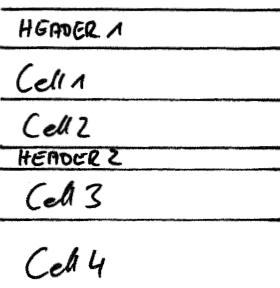 HEADER 1
Cell 1
Cell 2
HEADER 2
Cell 3
Cell 4